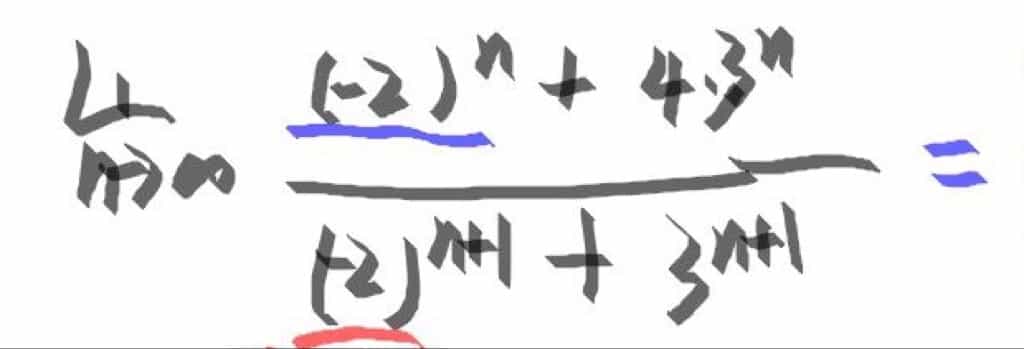 Lt n→∞ ((-2)^n + 4·3^n) / ((-2)^(n+1) + 3^(n+1)) =